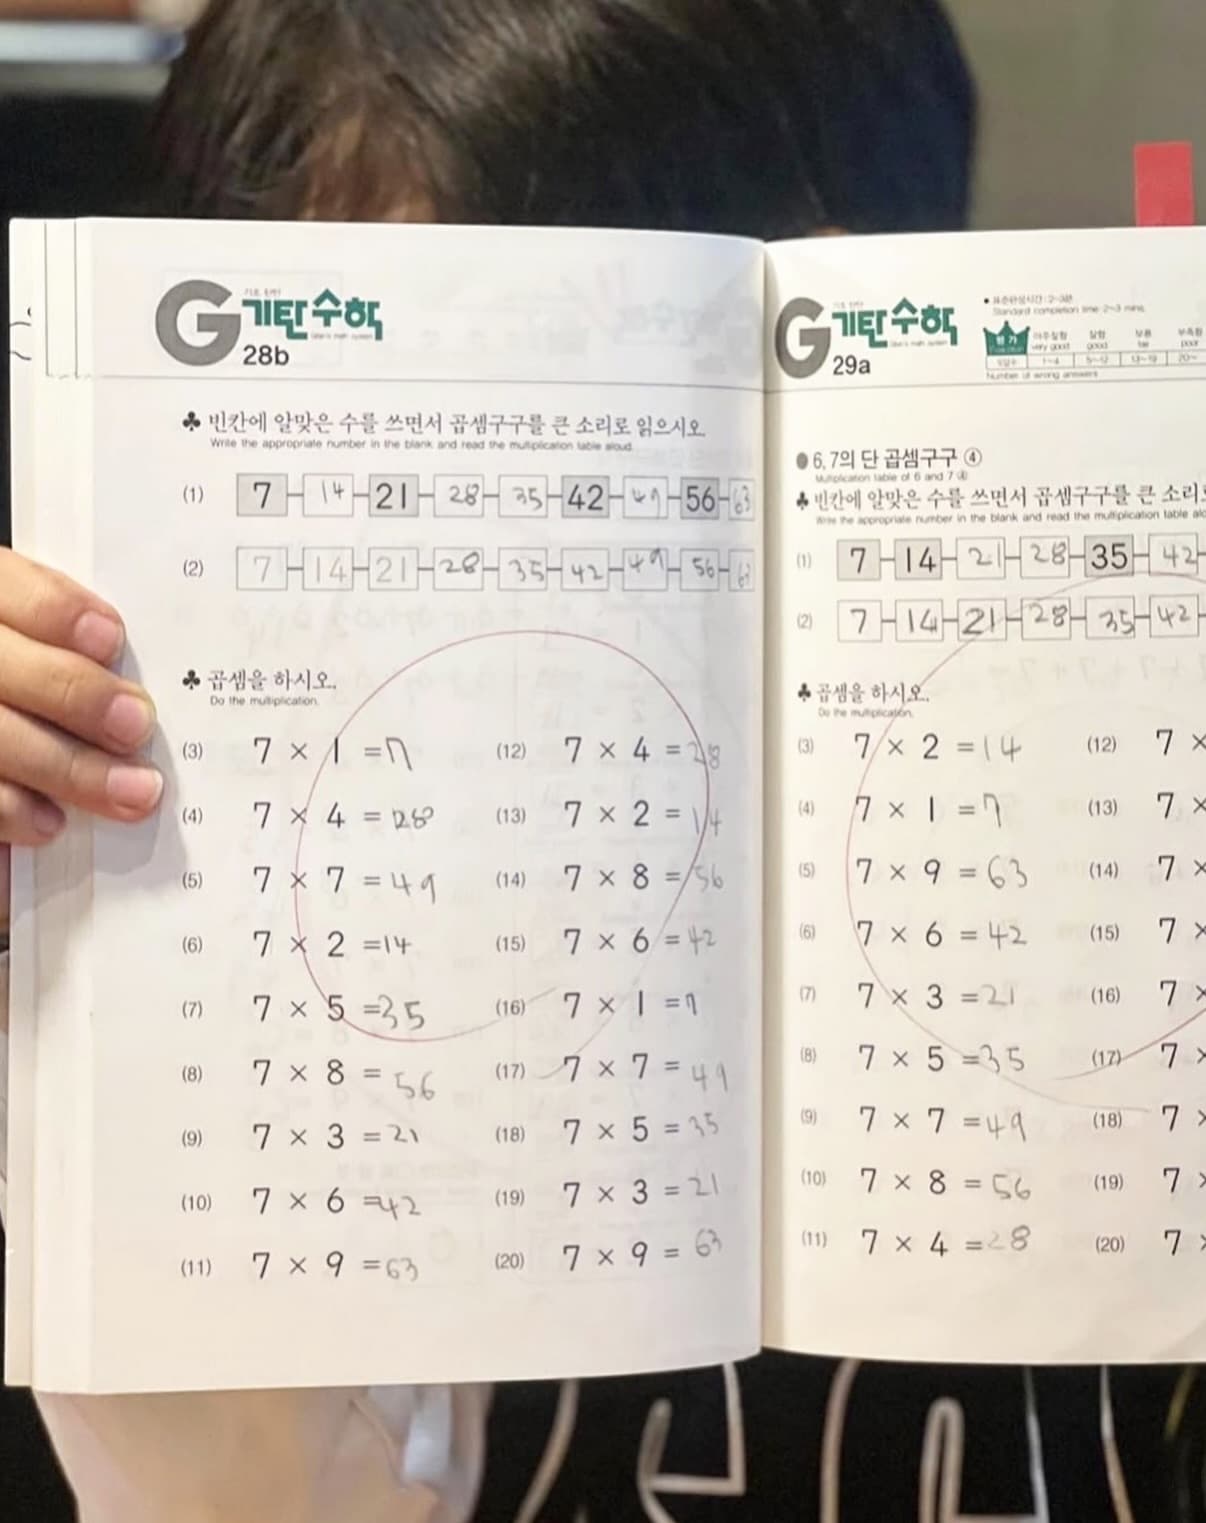 G 기탄수학
28b
♣ 빈칸에 알맞은 수를 쓰면서 곱셈구구를 큰 소리로 읽으시오.
Write the appropriate number in the blank and read the multiplication table aloud.
(1) 7 14 21 28 35 42 49 56 63
(2) 7 14 21 28 35 42 49 56 63
♣ 곱셈을 하시오.
Do the multiplication.
(3) 7 × 1 = 7
(4) 7 × 4 = 28
(5) 7 × 7 = 49
(6) 7 × 2 = 14
(7) 7 × 5 = 35
(8) 7 × 8 = 56
(9) 7 × 3 = 21
(10) 7 × 6 = 42
(11) 7 × 9 = 63
(12) 7 × 4 = 28
(13) 7 × 2 = 14
(14) 7 × 8 = 56
(15) 7 × 6 = 42
(16) 7 × 1 = 7
(17) 7 × 7 = 49
(18) 7 × 5 = 35
(19) 7 × 3 = 21
(20) 7 × 9 = 63
G 기탄수학
29a
● 표준완성시간 : 2~3분
Standard completion time 2~3 mins.
평가 아주잘함 잘함 보통 부족함
very good good fair poor
오답수 1~4 5~12 13~19 20~
Number of wrong answers
● 6, 7의 단 곱셈구구 ④
Multiplication table of 6 and 7 ④
♣ 빈칸에 알맞은 수를 쓰면서 곱셈구구를 큰 소리
Write the appropriate number in the blank and read the multiplication table
(1) 7 14 21 28 35 42
(2) 7 14 21 28 35 42
♣ 곱셈을 하시오.
Do the multiplication.
(3) 7 × 2 = 14
(4) 7 × 1 = 7
(5) 7 × 9 = 63
(6) 7 × 6 = 42
(7) 7 × 3 = 21
(8) 7 × 5 = 35
(9) 7 × 7 = 49
(10) 7 × 8 = 56
(11) 7 × 4 = 28
(12) 7 ×
(13) 7 ×
(14) 7 ×
(15) 7 ×
(16) 7 ×
(17) 7 ×
(18) 7 ×
(19) 7 ×
(20) 7 ×